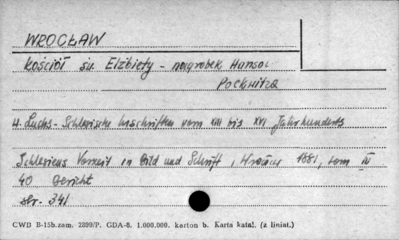 WROCŁAW
Kościół św. Elżbiety - nagrobek Hansa
Pockwitza
H. Luchs - Schlesische Inschriften vom XIII bis XVI Jahrhunderts
Schlesiens Vorzeit in Bild und Schrift, 1881, tom IV
40 Bericht
str. 341
CWD B-15b. zam. 2899/P. GDA-8. 1.000.000. karton b. Karta katal. (z liniat.)